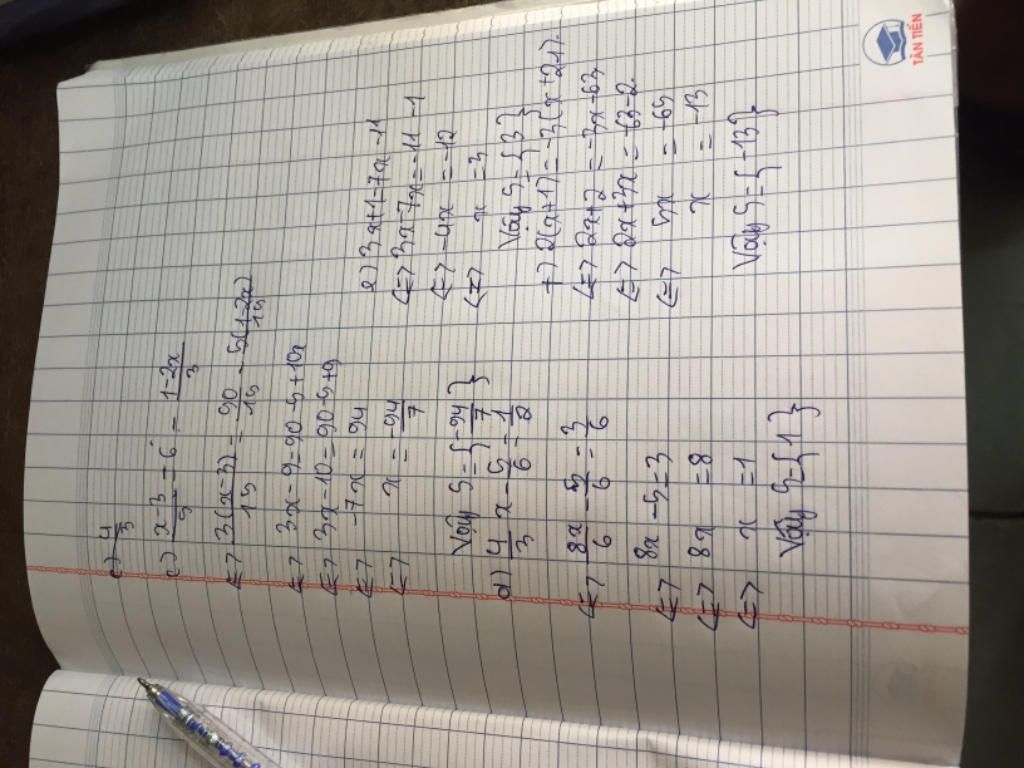 c) 4/3
c) (x-3)/5 = 6 - (1-2x)/3
<=> 3(x-3)/15 = 90/15 - 5(1-2x)/15
<=> 3x - 9 = 90 - 5 + 10x
<=> 3x - 10 = 90 - 5 + 9
<=> -7x = 94
<=> x = -94/7
Vậy S = {-94/7}
d) 4/3 x - 5/6 = 1/2
<=> 8x/6 - 5/6 = 3/6
<=> 8x - 5 = 3
<=> 8x = 8
<=> x = 1
Vậy S = {1}
e) 3x + 1 = 7x - 11
<=> 3x - 7x = -11 - 1
<=> -4x = -12
<=> x = 3
Vậy S = {3}
f) 2(x+1) = -3(x+21).
<=> 2x + 2 = -3x - 63
<=> 2x + 3x = -63 - 2
<=> 5x = -65
x = -13
Vậy S = {-13}
TÂN TIẾN